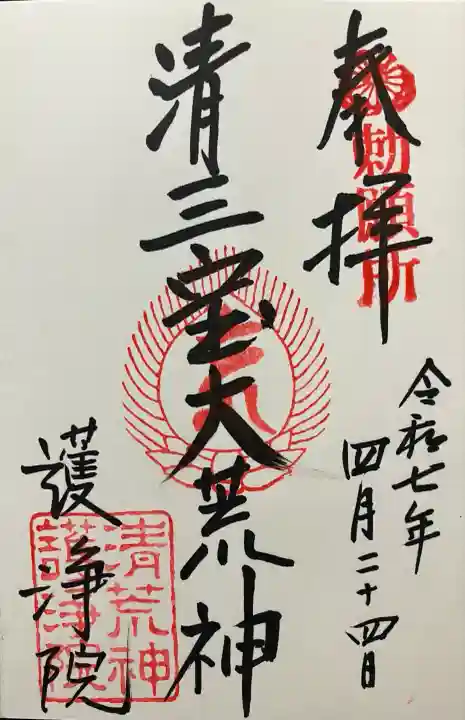 奉拝
勅願所
令和七年
四月二十四日
清三宝大荒神
護浄院
清荒神
護浄院